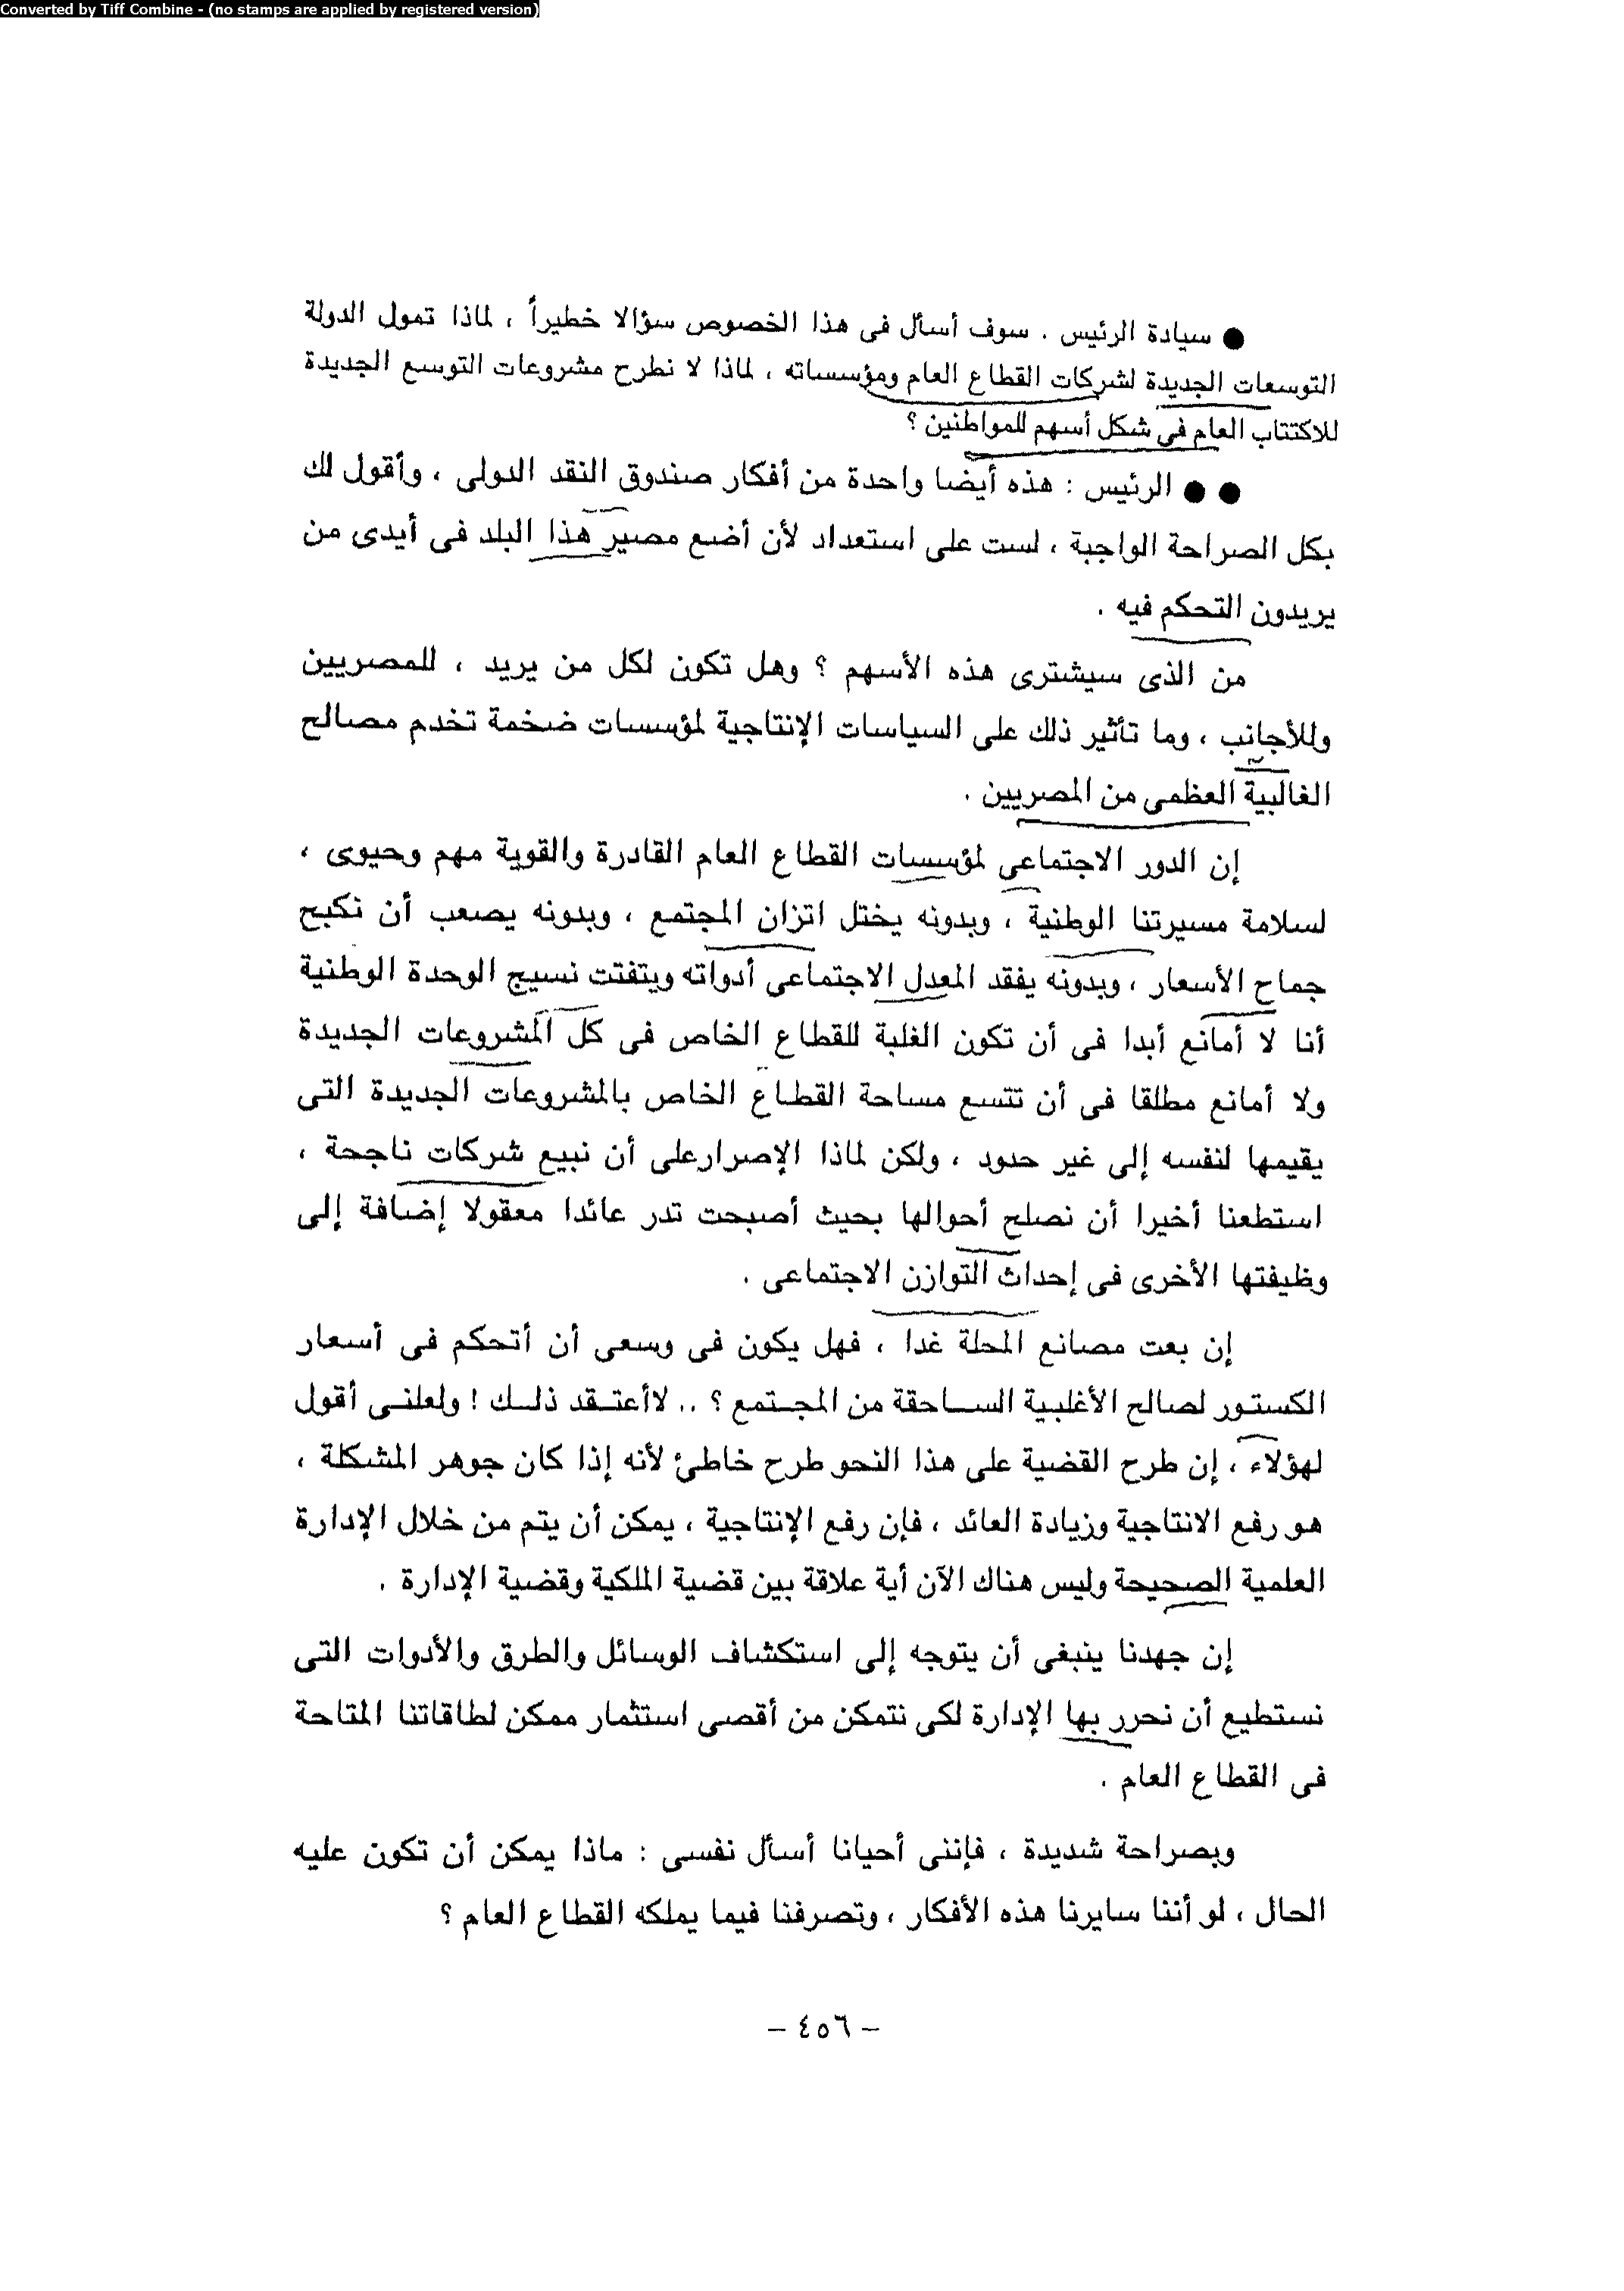 Converted by Tiff Combine - (no stamps are applied by registered version)
● سيادة الرئيس . سوف أسأل فى هذا الخصوص سؤالا خطيراً ، لماذا تمول الدولة
التوسعات الجديدة لشركات القطاع العام ومؤسساته ، لماذا لا نطرح مشروعات التوسع الجديدة
للاكتتاب العام فى شكل أسهم للمواطنين ؟
● ● الرئيس : هذه أيضا واحدة من أفكار صندوق النقد الدولى ، وأقول لك
بكل الصراحة الواجبة ، لست على استعداد لأن أضع مصير هذا البلد فى أيدى من
يريدون التحكم فيه .
من الذى سيشترى هذه الأسهم ؟ وهل تكون لكل من يريد ، للمصريين
وللأجانب ، وما تأثير ذلك على السياسات الإنتاجية لمؤسسات ضخمة تخدم مصالح
الغالبية العظمى من المصريين .
إن الدور الاجتماعى لمؤسسات القطاع العام القادرة والقوية مهم وحيوى ،
لسلامة مسيرتنا الوطنية ، وبدونه يختل اتزان المجتمع ، وبدونه يصعب أن نكبح
جماح الأسعار ، وبدونه يفقد المعدل الاجتماعى أدواته ويتفتت نسيج الوحدة الوطنية
أنا لا أمانع أبدا فى أن تكون الغلبة للقطاع الخاص فى كل المشروعات الجديدة
ولا أمانع مطلقا فى أن تتسع مساحة القطاع الخاص بالمشروعات الجديدة التى
يقيمها لنفسه إلى غير حدود ، ولكن لماذا الإصرارعلى أن نبيع شركات ناجحة ،
استطعنا أخيرا أن نصلح أحوالها بحيث أصبحت تدر عائدا معقولا إضافة إلى
وظيفتها الأخرى فى إحداث التوازن الاجتماعى .
إن بعت مصانع المحلة غدا ، فهل يكون فى وسعى أن أتحكم فى أسعار
الكستور لصالح الأغلبية الساحقة من المجتمع ؟ .. لاأعتقد ذلك ! ولعلنى أقول
لهؤلاء ، إن طرح القضية على هذا النحو طرح خاطئ لأنه إذا كان جوهر المشكلة ،
هو رفع الانتاجية وزيادة العائد ، فإن رفع الإنتاجية ، يمكن أن يتم من خلال الإدارة
العلمية الصحيحة وليس هناك الآن أية علاقة بين قضية الملكية وقضية الإدارة .
إن جهدنا ينبغى أن يتوجه إلى استكشاف الوسائل والطرق والأدوات التى
نستطيع أن نحرر بها الإدارة لكى نتمكن من أقصى استثمار ممكن لطاقاتنا المتاحة
فى القطاع العام .
وبصراحة شديدة ، فإننى أحيانا أسأل نفسى : ماذا يمكن أن تكون عليه
الحال ، لو أننا سايرنا هذه الأفكار ، وتصرفنا فيما يملكه القطاع العام ؟
– ٤٥٦ –